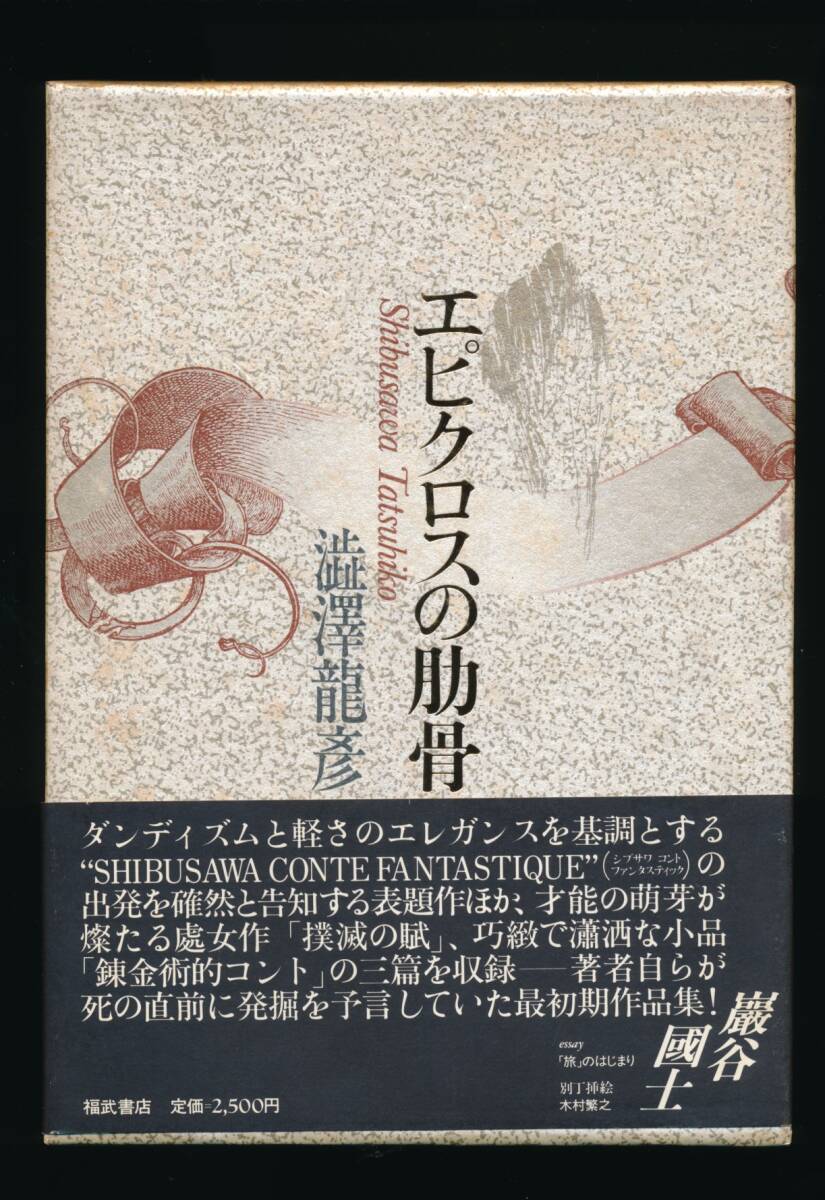 エピクロスの肋骨
Shibusawa Tatsuhiko
澁澤龍彥
ダンディズムと軽さのエレガンスを基調とする
“SHIBUSAWA CONTE FANTASTIQUE”(シブサワ コント ファンタスティック)の
出発を確然と告知する表題作ほか、才能の萌芽が
燦たる處女作「撲滅の賦」、巧緻で瀟洒な小品
「錬金術的コント」の三篇を収録──著者自らが
死の直前に発掘を予言していた最初期作品集!
巖谷
國士
essay
「旅」のはじまり
別丁挿絵
木村繁之
福武書店 定価=2,500円